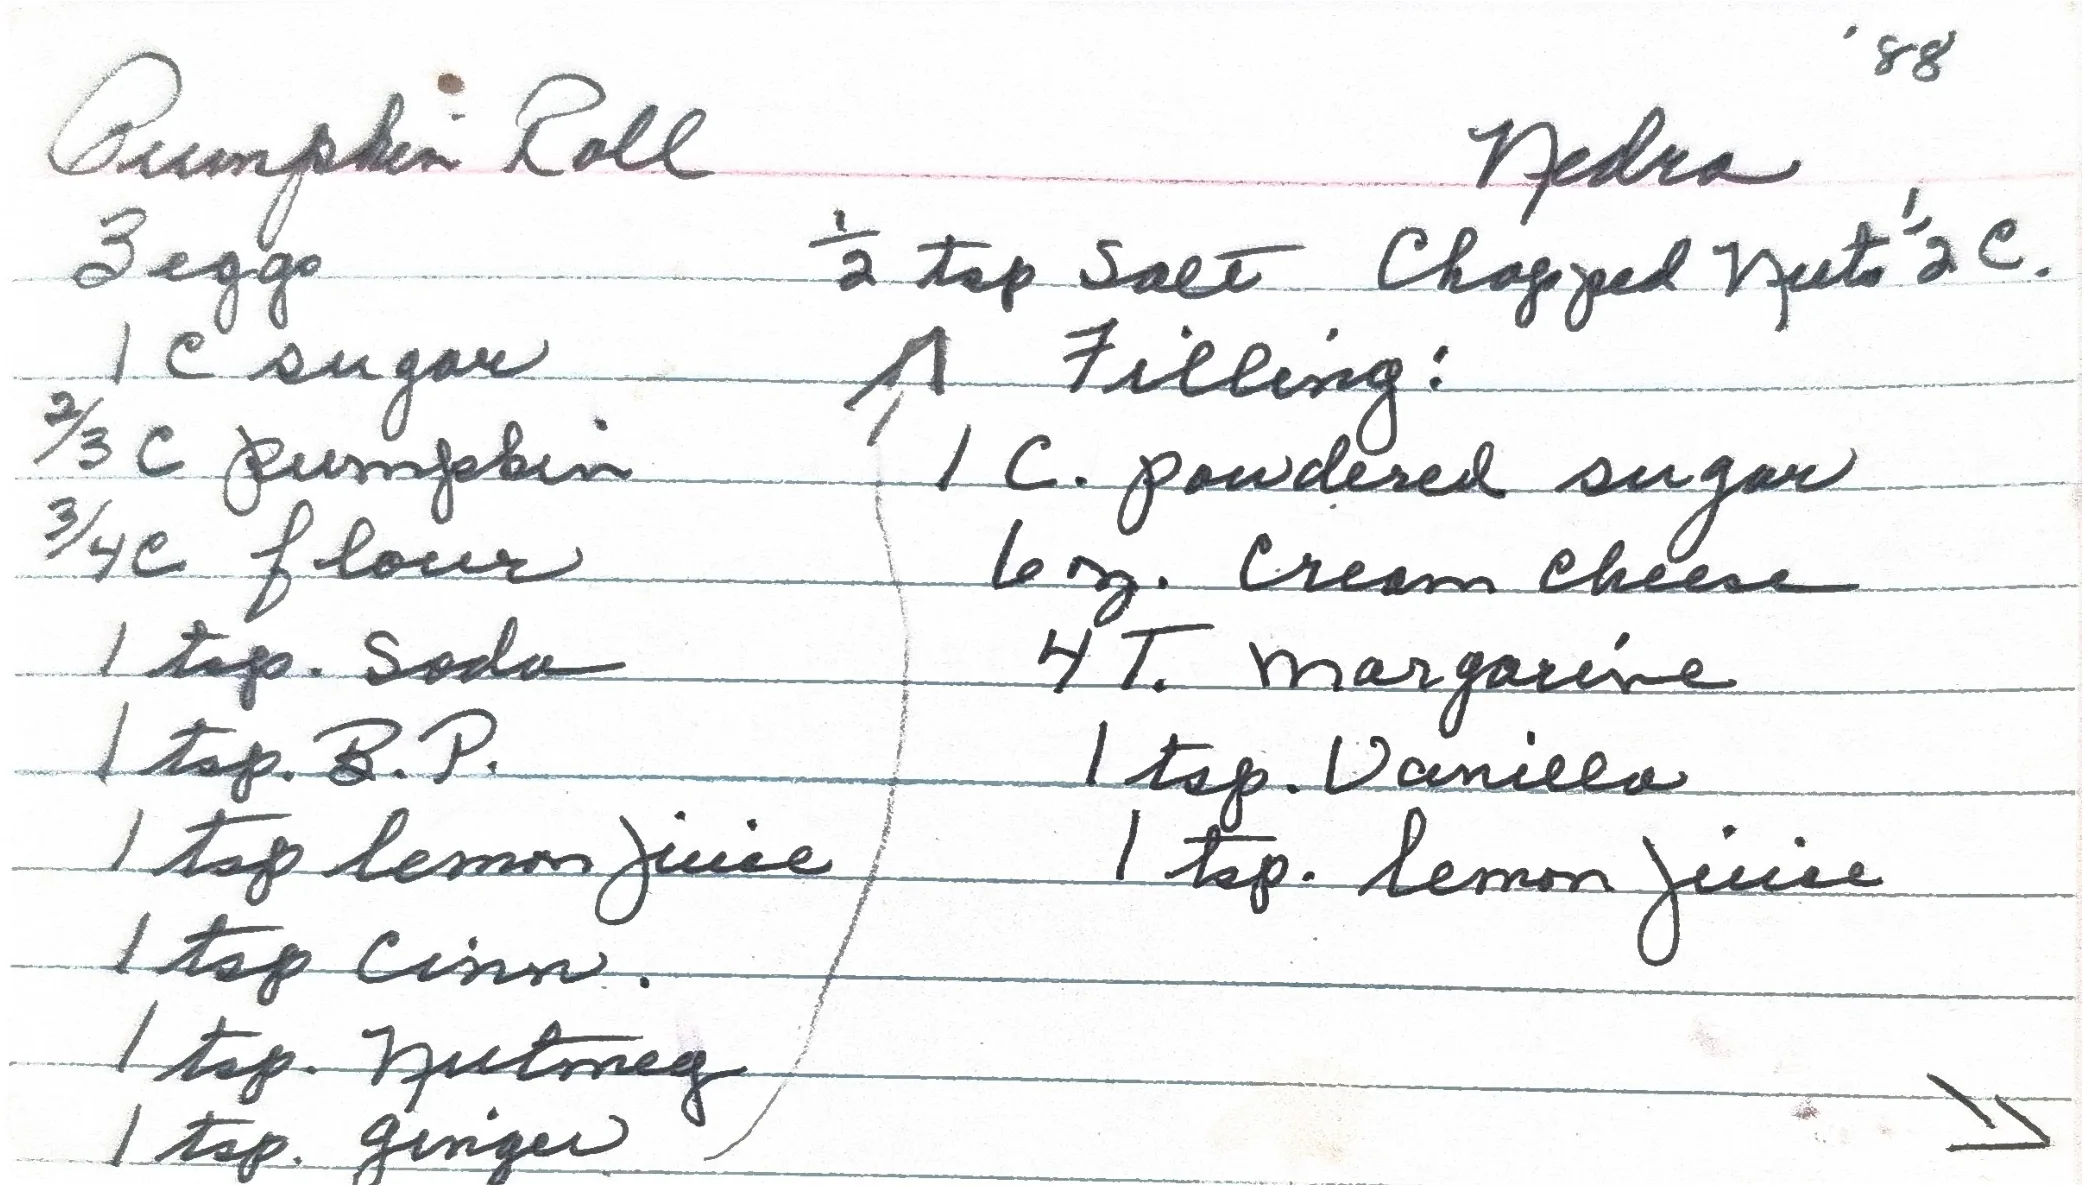 '88
Pumpkin Roll Nedra
3 eggs
1 C sugar
2/3 C pumpkin
3/4 C flour
1 tsp. Soda
1 tsp. B.P.
1 tsp lemon juice
1 tsp Cinn.
1 tsp. Nutmeg
1 tsp. ginger
1/2 tsp Salt Chopped Nuts 1/2 C.
Filling:
1 C. powdered sugar
6 oz. Cream cheese
4 T. Margarine
1 tsp. Vanilla
1 tsp. lemon juice